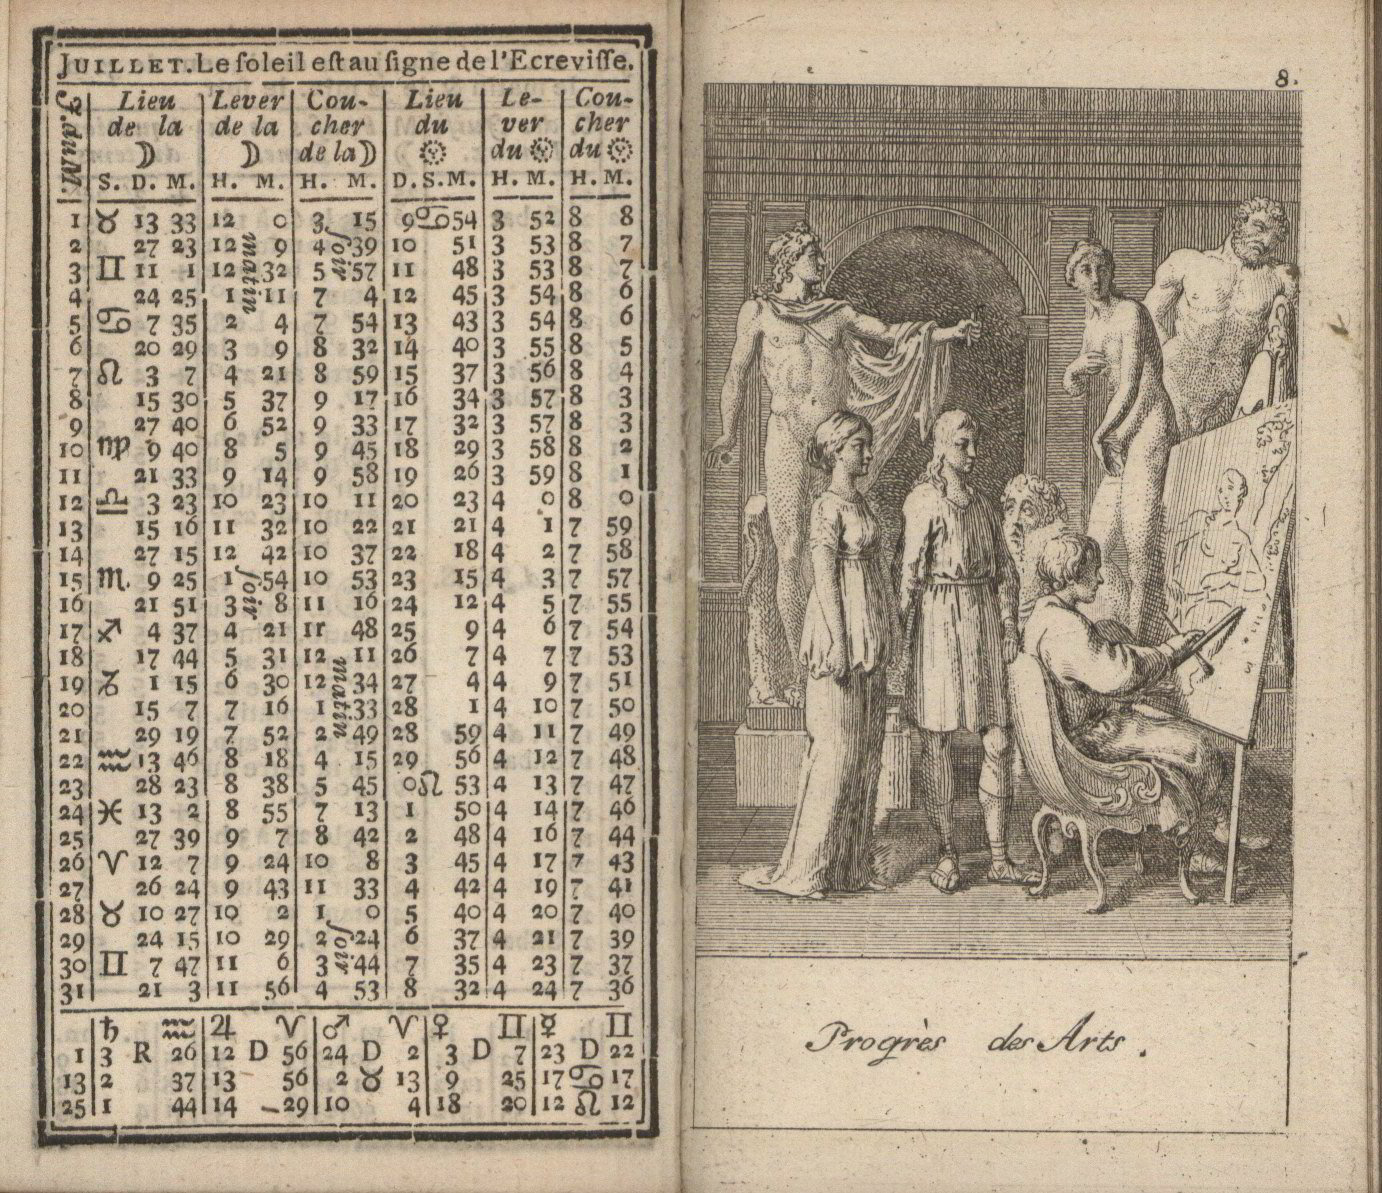 JUILLET. Le ſoleil eſt au ſigne de l'Ecreviſſe.
J. du M. | Lieu | Lever | Cou- | Lieu | Le- | Cou-
de la | de la | cher | du | ver | cher
☽ | ☽ | de la ☽ | ☉ | du ☉ | du ☉
S. D. M. | H. M. | H. M. | D. S. M. | H. M. | H. M.
1 ♉ 13 33 12 0 3 15 9 ♋ 54 3 52 8 8
2 27 23 12 9 4 39 10 51 3 53 8 7
3 ♊ 11 1 12 32 5 57 11 48 3 53 8 7
4 24 25 1 11 7 4 12 45 3 54 8 6
5 ♋ 7 35 2 4 7 54 13 43 3 54 8 6
6 20 29 3 9 8 32 14 40 3 55 8 5
7 ♌ 3 7 4 21 8 59 15 37 3 56 8 4
8 15 30 5 37 9 17 16 34 3 57 8 3
9 27 40 6 52 9 33 17 32 3 57 8 3
10 ♍ 9 40 8 5 9 45 18 29 3 58 8 2
11 21 33 9 14 9 58 19 26 3 59 8 1
12 ♎ 3 23 10 23 10 11 20 23 4 0 8 0
13 15 16 11 32 10 22 21 21 4 1 7 59
14 27 15 12 42 10 37 22 18 4 2 7 58
15 ♏ 9 25 1 54 10 53 23 15 4 3 7 57
16 21 51 3 8 11 16 24 12 4 5 7 55
17 ♐ 4 37 4 21 11 48 25 9 4 6 7 54
18 17 44 5 31 12 11 26 7 4 7 7 53
19 ♑ 1 15 6 30 12 34 27 4 4 9 7 51
20 15 7 7 16 1 33 28 1 4 10 7 50
21 29 19 7 52 2 49 28 59 4 11 7 49
22 ♒ 13 46 8 18 4 15 29 56 4 12 7 48
23 28 23 8 38 5 45 0 ♌ 53 4 13 7 47
24 ♓ 13 2 8 55 7 13 1 50 4 14 7 46
25 27 39 9 7 8 42 2 48 4 16 7 44
26 ♈ 12 7 9 24 10 8 3 45 4 17 7 43
27 26 24 9 43 11 33 4 42 4 19 7 41
28 ♉ 10 27 10 2 1 0 5 40 4 20 7 40
29 24 15 10 29 2 24 6 37 4 21 7 39
30 ♊ 7 47 11 6 3 44 7 35 4 23 7 37
31 21 3 11 56 4 53 8 32 4 24 7 36
matin
ſoir
ſoir
matin
ſoir
♄ ♒ ♃ ♈ ♂ ♈ ♀ ♊ ☿ ♊
1 3 R 26 12 D 56 24 D 2 3 D 7 23 D 22
13 2 37 13 56 2 ♉ 13 9 25 17 ♋ 17
25 1 44 14 29 10 4 18 20 12 ♌ 12
8.
Progrès des Arts.